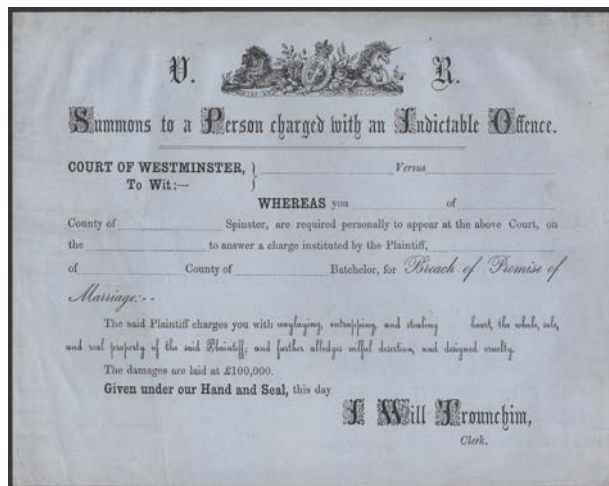 V. R.
Summons to a Person charged with an Indictable Offence.
COURT OF WESTMINSTER, } Versus
To Wit:—
WHEREAS you of
County of Spinster, are required personally to appear at the above Court, on
the to answer a charge instituted by the Plaintiff,
of County of Batchelor, for Breach of Promise of
Marriage:--
The said Plaintiff charges you with waylaying, entrapping, and stealing heart, the whole, sole,
and real property of the said Plaintiff; and further alledges wilful desertion, and designed cruelty.
The damages are laid at £100,000.
Given under our Hand and Seal, this day
I Will Trounchim,
Clerk.